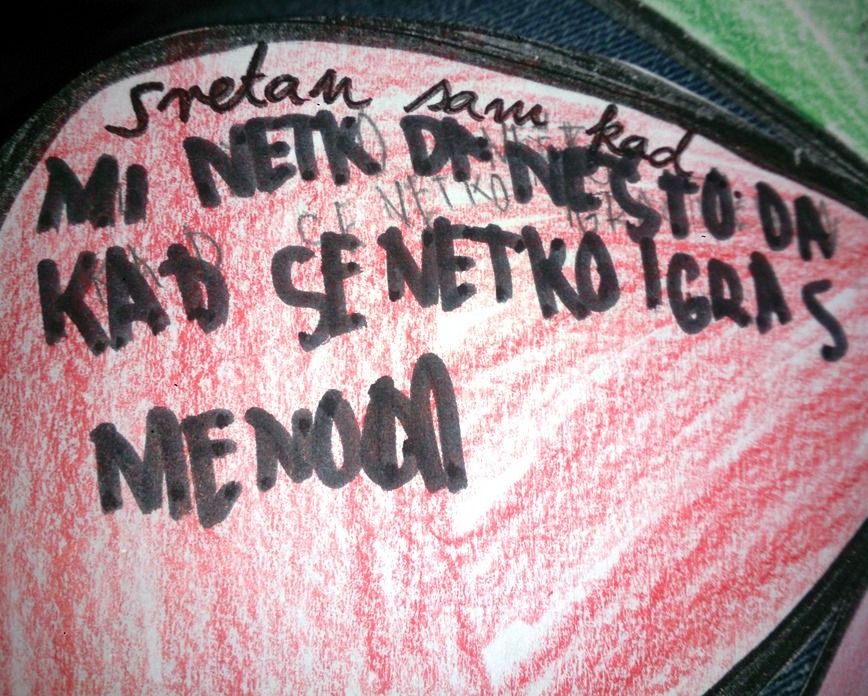 Sretan sam kad
MI NETK DA NEŠTO DA
KAD SE NETKO IGRA S
MENOM